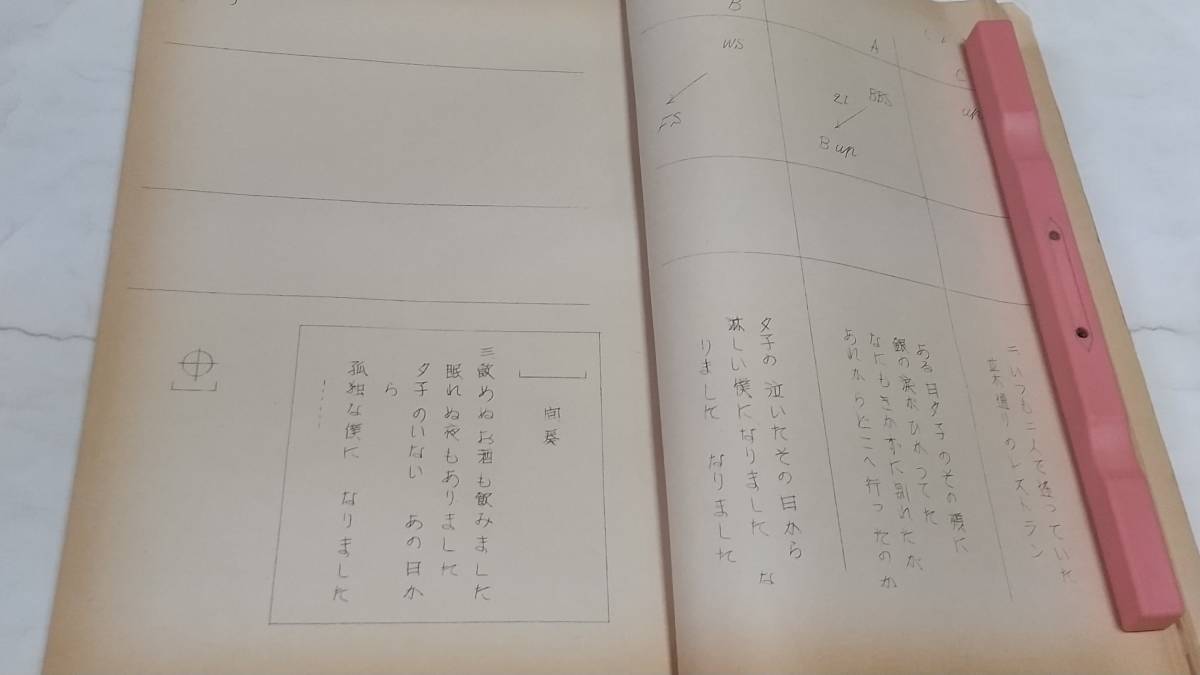 C
up
二 いつも二人で逢っていた
並木通りのレストラン
A
BBS
Bup
ある日夕子のその頬に
銀の涙がひかってた
なにもきかずに別れたが
あれからどこへ行ったのか
B
WS
FS
夕子の 泣いたその日から
淋しい僕になりました な
りました なりました
間奏
三 飲めぬお酒も飲みました
眠れぬ夜もありました
夕子のいない あの日か
ら
孤独な僕に なりました